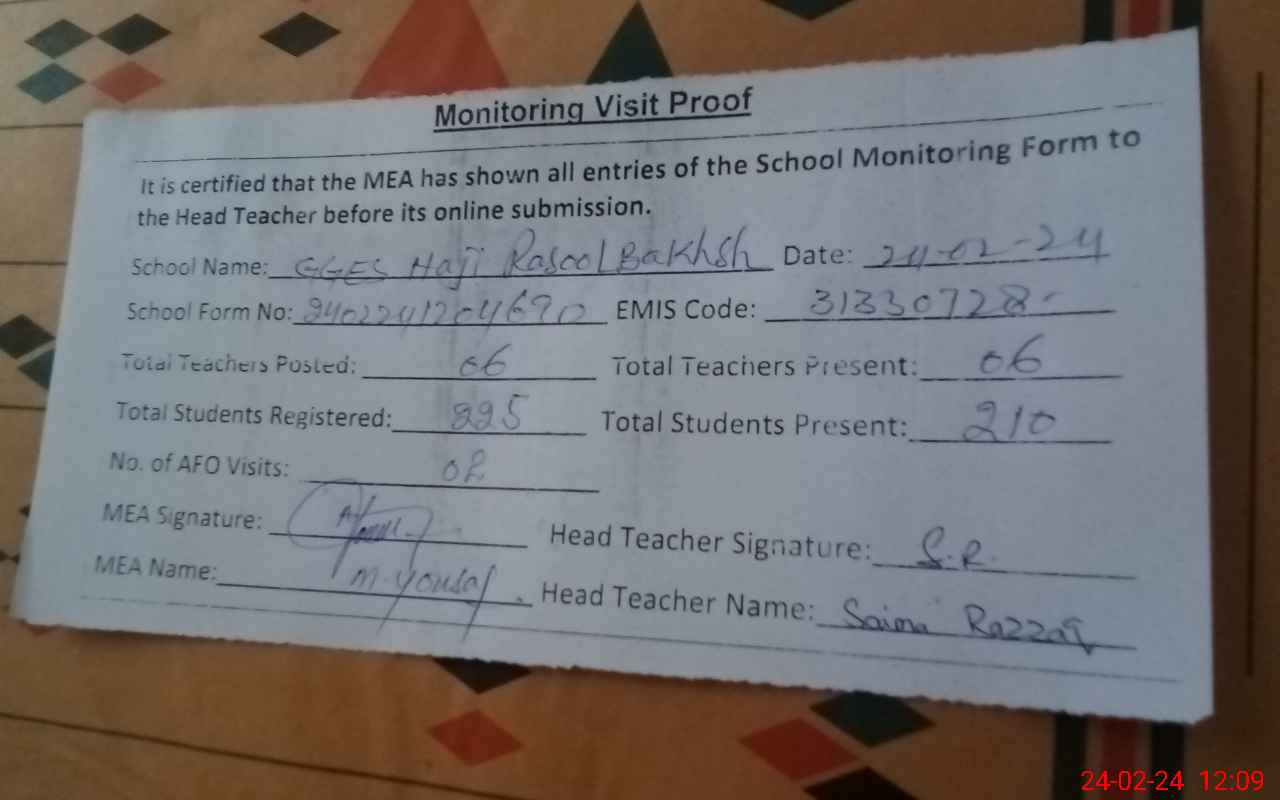 Monitoring Visit Proof
It is certified that the MEA has shown all entries of the School Monitoring Form to
the Head Teacher before its online submission.
School Name: GGES Haji Rasool Bakhsh Date: 24-02-24
School Form No: 2402241204690 EMIS Code: 31330728
Total Teachers Posted: 06 Total Teachers Present: 06
Total Students Registered: 225 Total Students Present: 210
No. of AFO Visits: 02
MEA Signature: Head Teacher Signature: S.R.
MEA Name: M. Yousaf Head Teacher Name: Saima Razzaq
24-02-24 12:09